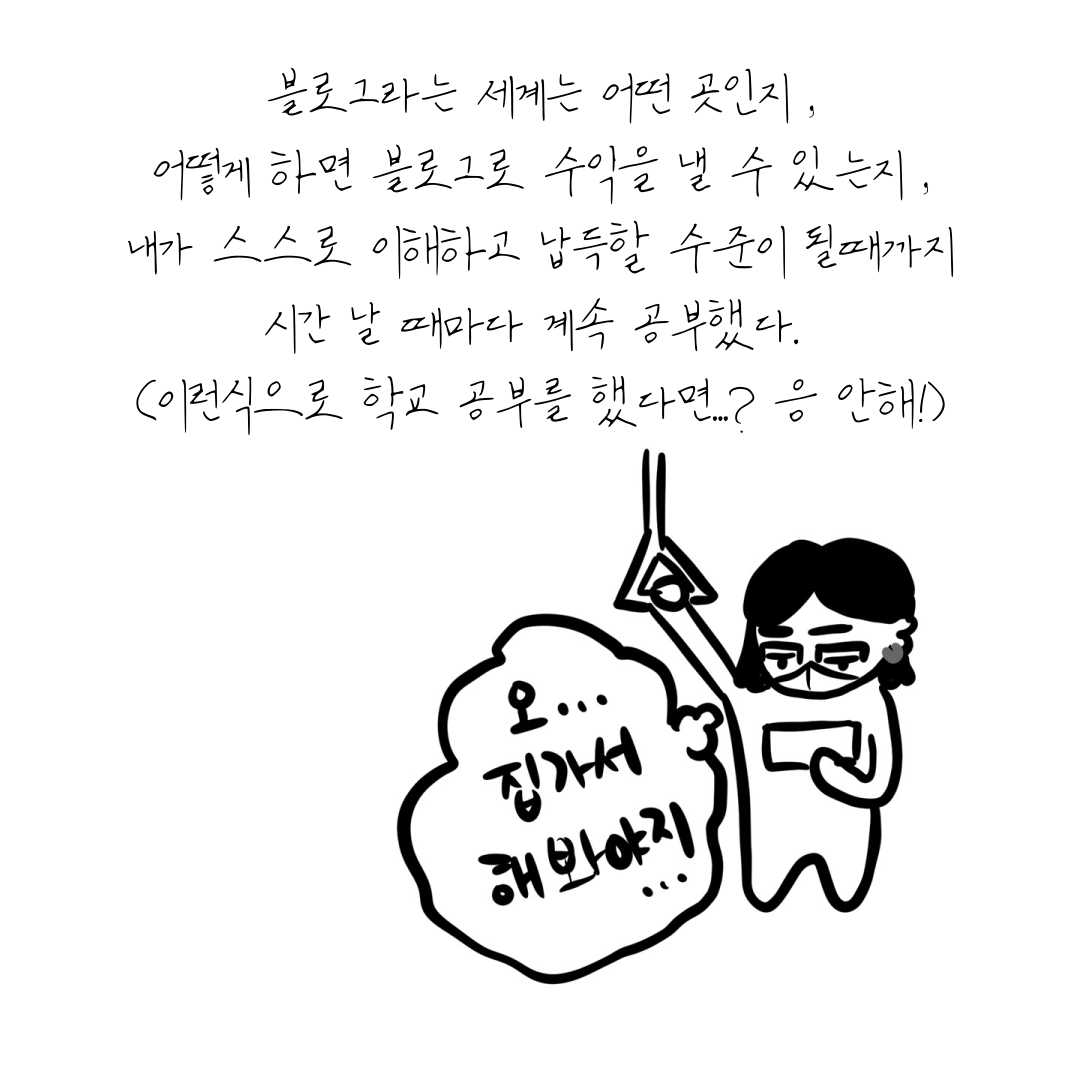 블로그라는 세계는 어떤 곳인지,
어떻게 하면 블로그로 수익을 낼 수 있는지,
내가 스스로 이해하고 납득할 수준이 될때까지
시간 날 때마다 계속 공부했다.
(이런식으로 학교 공부를 했다면...? 응 안해!)
오...
집가서
해봐야지
...